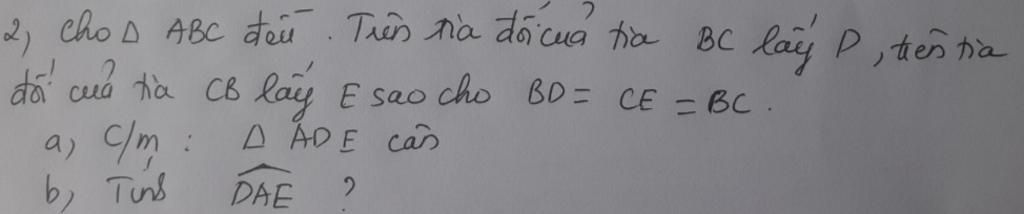 2, Cho Δ ABC đều. Trên tia đối của tia BC lấy D, trên tia
đối của tia CB lấy E sao cho BD = CE = BC.
a, C/m : Δ ADE cân
b, Tính \widehat{DAE} ?